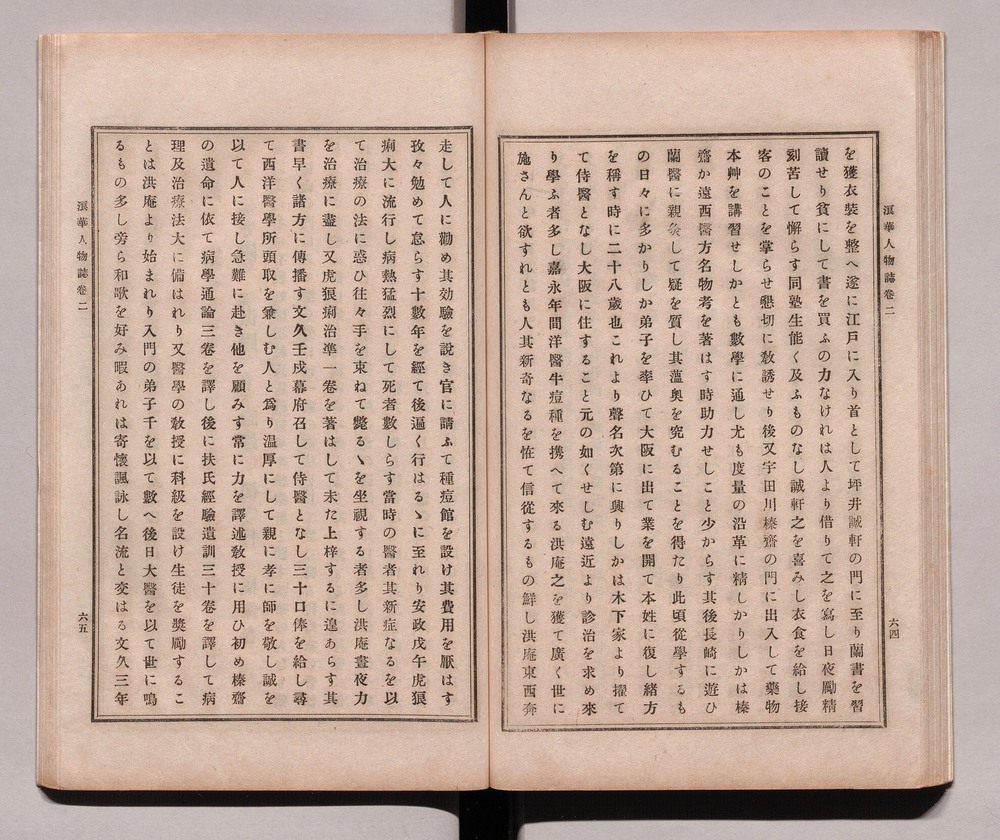 浪華人物誌卷二
六四
を獲衣裝を整へ遂に江戸に入り首として坪井誠軒の門に至り蘭書を習
讀せり貧にして書を買ふの力なけれは人より借りて之を寫し日夜勵精
刻苦して懈らす同塾生能く及ふものなし誠軒之を喜みし衣食を給し接
客のことを掌らせ懇切に敎誘せり後又宇田川榛齋の門に出入して藥物
本艸を講習せしかとも數學に通し尤も度量の沿革に精しかりしかは榛
齋か遠西醫方名物考を著はす時助力せしこと少からす其後長崎に遊ひ
蘭醫に親炙して疑を質し其薀奥を究むることを得たり此頃從學するも
の日々に多かりしか弟子を率ひて大阪に出て業を開て本姓に復し緒方
を稱す時に二十八歳也これより聲名次第に興りしかは木下家より擢て
て侍醫となし大阪に住すること元の如くせしむ遠近より診治を求め來
り學ふ者多し嘉永年間洋醫牛痘種を携へて來る洪庵之を獲て廣く世に
施さんと欲すれとも人其新奇なるを恠て信從するもの鮮し洪庵東西奔
走して人に勸め其効驗を說き官に請ふて種痘館を設け其費用を厭はす
孜々勉めて怠らす十數年を經て後遍く行はるゝに至れり安政戊午虎狼
痢大に流行し病熱猛烈にして死者數しらす當時の醫者其新症なるを以
て治療の法に惑ひ往々手を束ねて斃るゝを坐視する者多し洪庵晝夜力
を治療に盡し又虎狼痢治準一卷を著はして未た上梓するに遑あらす其
書早く諸方に傳播す文久壬戌幕府召して侍醫となし三十口俸を給し尋
て西洋醫學所頭取を兼しむ人と爲り温厚にして親に孝に師を敬し誠を
以て人に接し急難に赴き他を顧みす常に力を譯述敎授に用ひ初め榛齋
の遺命に依て病學通論三卷を譯し後に扶氏經驗遺訓三十卷を譯して病
理及治療法大に備はれり又醫學の敎授に科級を設け生徒を奬勵するこ
とは洪庵より始まれり入門の弟子千を以て數へ後日大醫を以て世に鳴
るもの多し旁ら和歌を好み暇あれは寄懷諷詠し名流と交はる文久三年
浪華人物誌卷二
六五